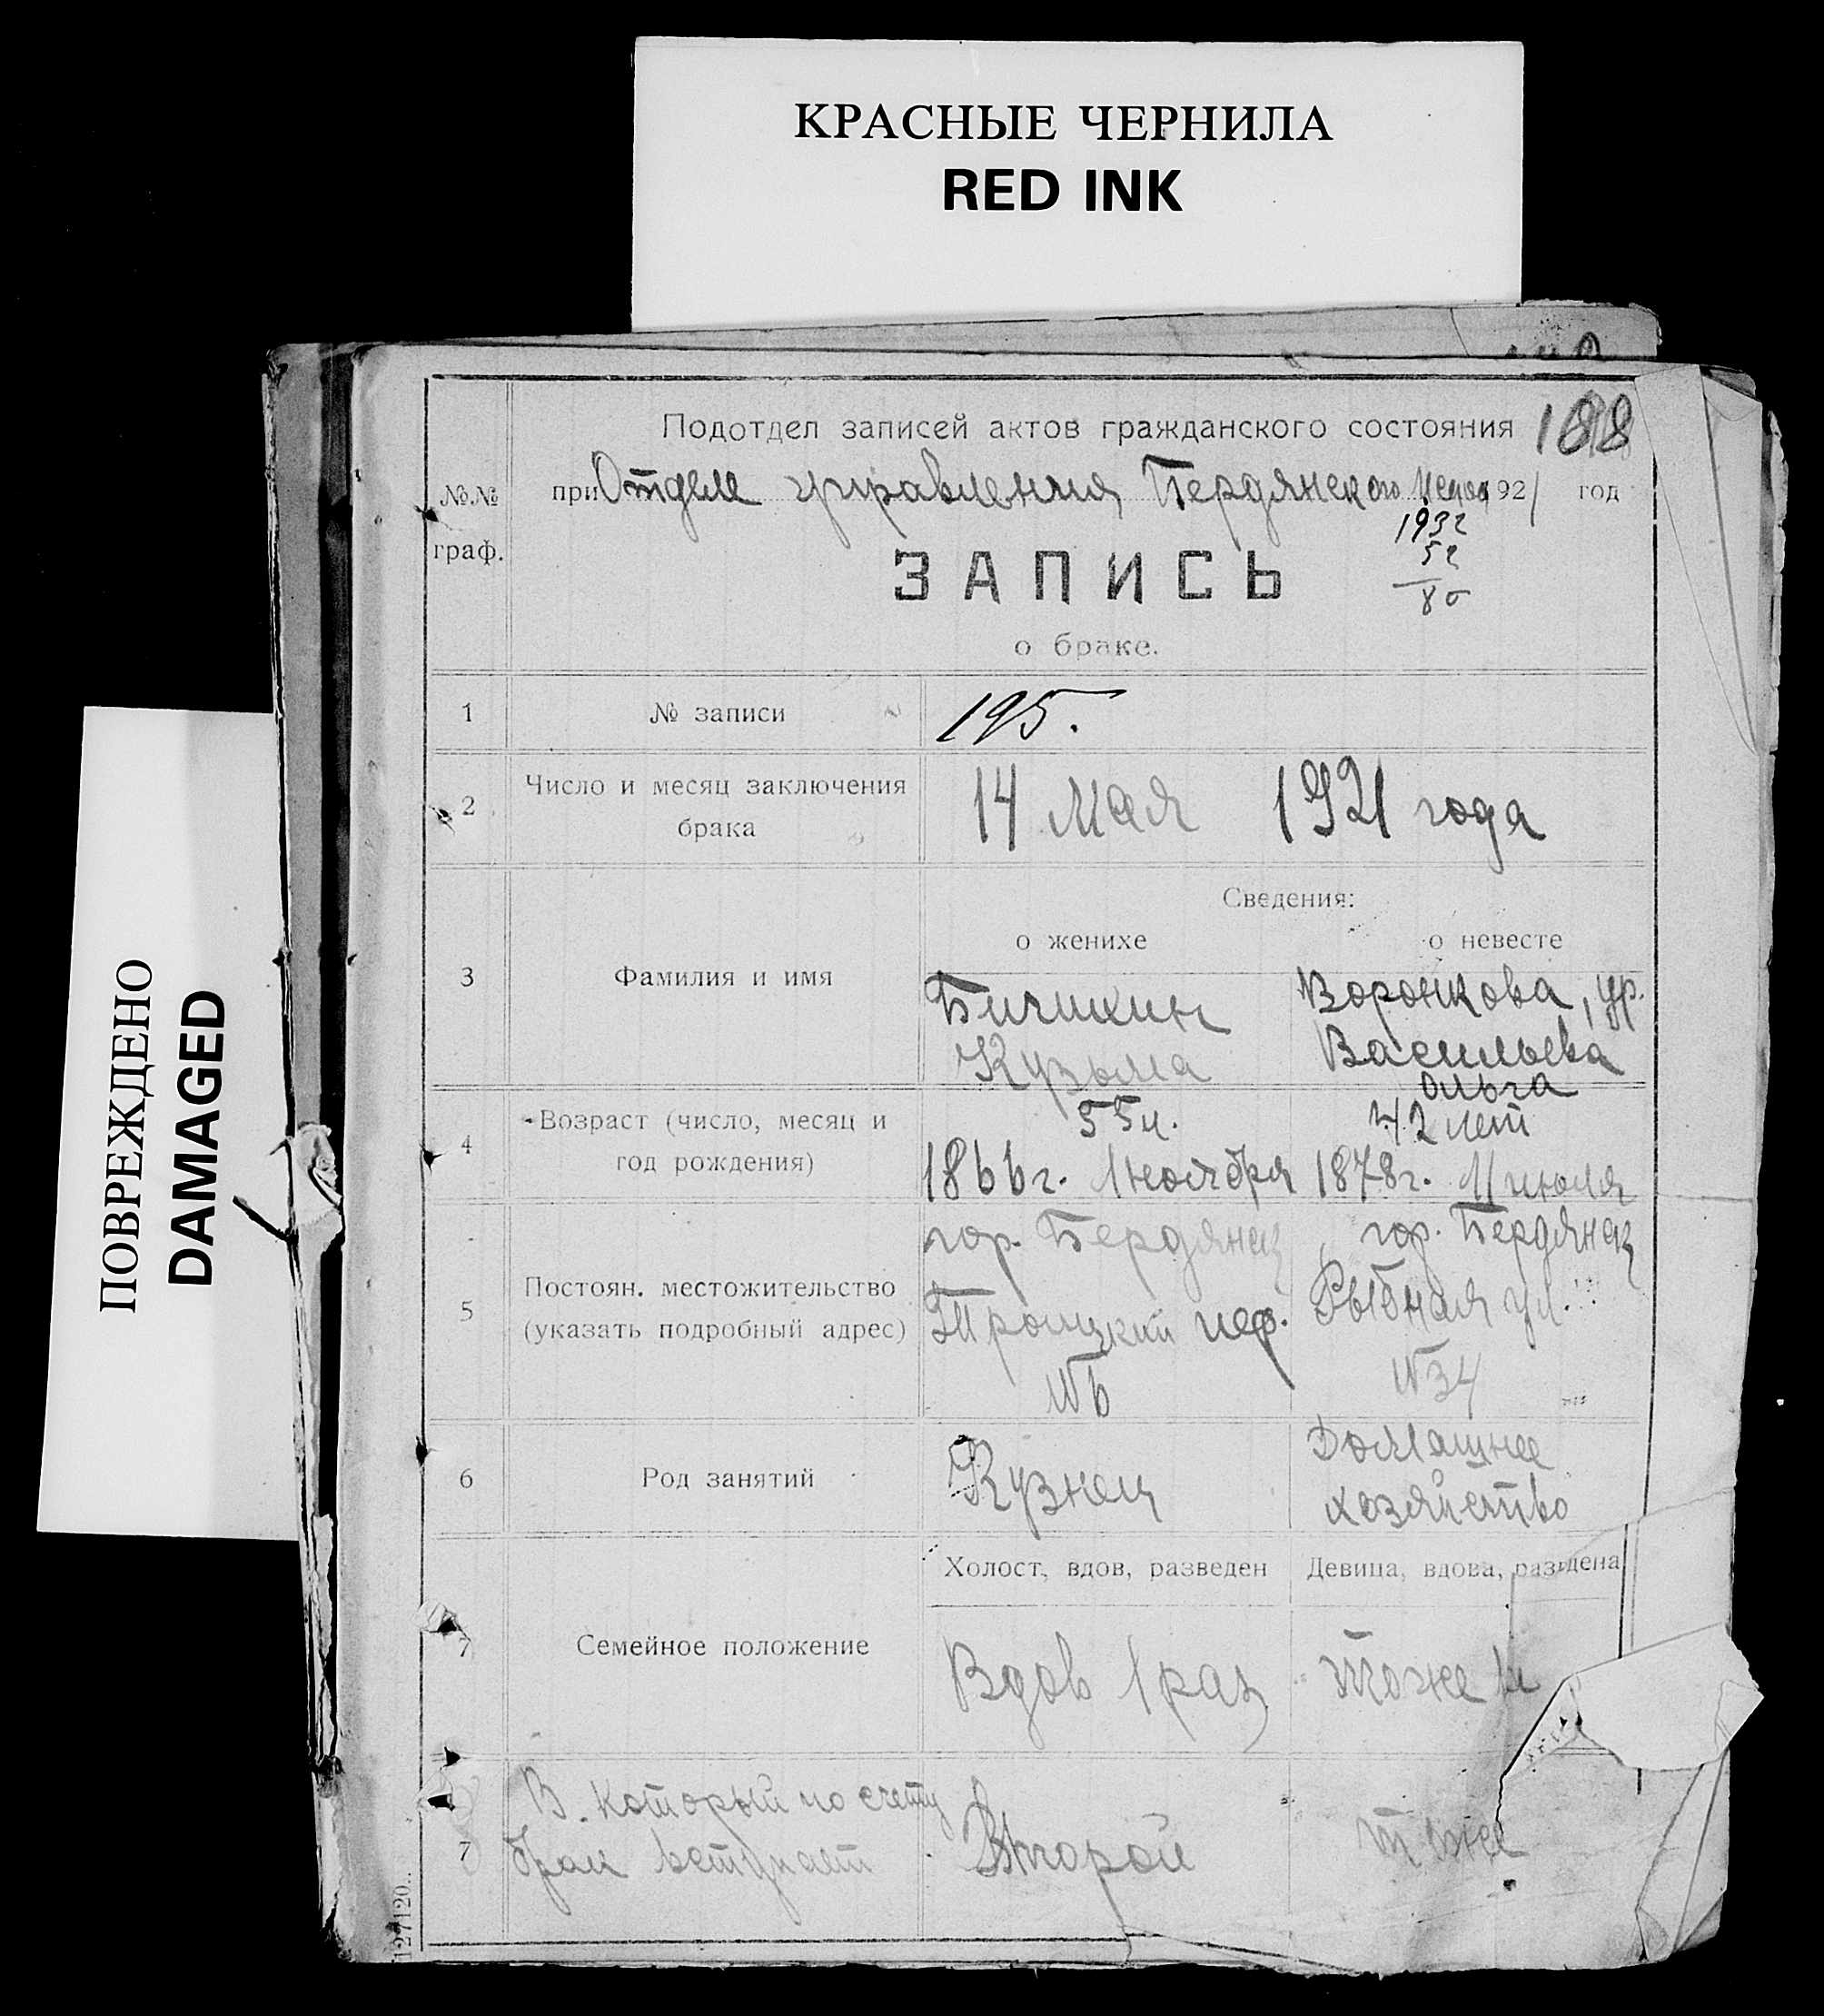 КРАСНЫЕ ЧЕРНИЛА
RED INK
ПОВРЕЖДЕНО
DAMAGED
188
Подотдел записей актов гражданского состояния
№№ граф.
при Отделе управления Бердянского 1921 год
1932
52
80
ЗАПИСЬ
о браке.
1 № записи 195.
2 Число и месяц заключения брака 14 мая 1921 года
Сведения:
о женихе о невесте
3 Фамилия и имя
Бичихин
Кузьма
Воронкова, ур.
Васильева
Ольга
4 Возраст (число, месяц и год рождения)
55 л.
1866 г. 1 ноября
42 лет
1878 г. 11 июля
5 Постоян. местожительство
(указать подробный адрес)
гор. Бердянск
Троицкий пер.
№6
гор. Бердянск
Рыбная ул.
№34
6 Род занятий
Кузнец
Домашнее
хозяйство
7 Семейное положение
Холост, вдов, разведен
Девица, вдова, разведена
Вдов 1 раз
тоже
7 В который по счету
брак вступает
Второй
тоже
127120..